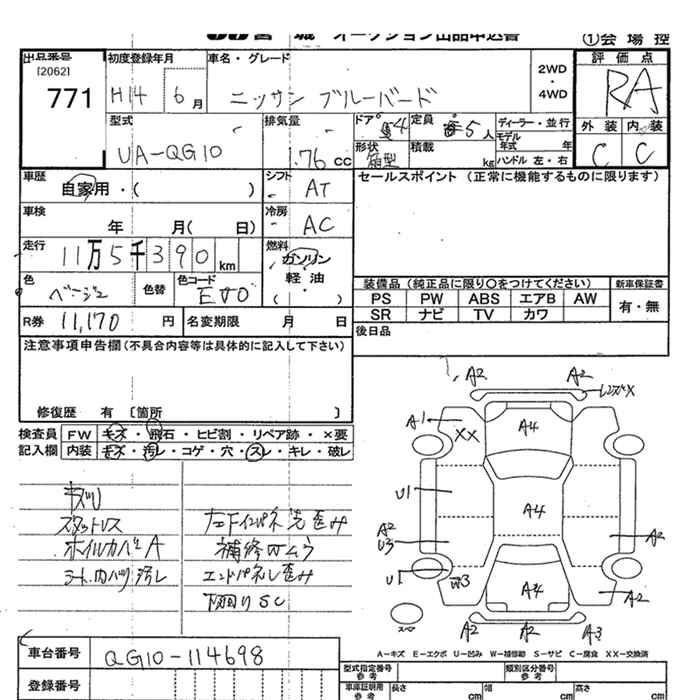 宮城 オークション出品申込書
①会場控
出品番号
[2062]
771
初度登録年月
H14 6月
車名・グレード
ニッサン ブルーバード
2WD
・
4WD
評価点
RA
型式
UA-QG10
排気量
1.76 cc
ドア
4
定員
5人
形状
箱型
積載
kg
ディーラー・並行
モデル年式 年
ハンドル 左・右
外装 内装
C C
車歴
自家用・( )
シフト
AT
セールスポイント (正常に機能するものに限ります)
車検
年 月( 日)
冷房
AC
走行
11万5千390km
燃料
ガソリン
軽油
・( )
色
ベージュ
色替
色コード
EV0
装備品 (純正品に限り○をつけてください)
新車保証書
PS PW ABS エアB AW
有・無
SR ナビ TV カワ
R券 11,170 円
名変期限 月 日
後日品
注意事項申告欄(不具合内容等は具体的に記入して下さい)
修復歴 有 〔箇所 〕
検査員記入欄
FW キズ・飛石・ヒビ割・リペア跡・×要
内装 キズ・汚レ・コゲ・穴・スレ・キレ・破レ
キズU
スタットレス
ホイルカバーA
シート、内バリ汚レ
左下インパネ先歪み
補修ムラ
エンドパネル歪み
下回りSC
A2 A2
レンズキズX
A1
XX
A4
U1
A4
A2
U3
A2
U1
W3
A4
A2
スペア
A2 A2 A3
A-キズ E-エクボ U-凹み W-補修跡 S-サビ C-腐食 XX-交換済
車台番号
QG10-114698
登録番号
型式指定番号
参考
類別区分番号
参考
車庫証明用
参考
長さ cm
幅 cm
高さ cm